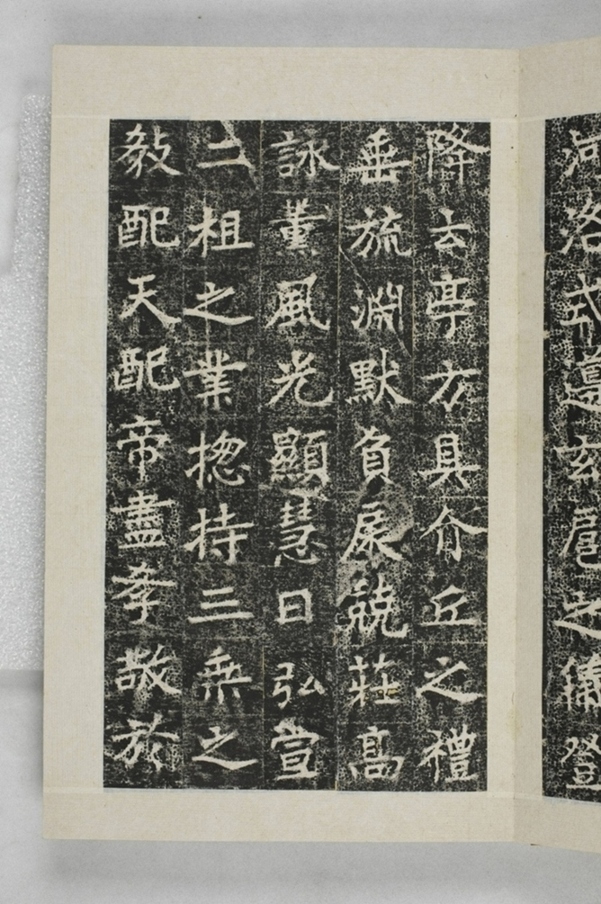 河洛式遵玄扈之儀登
降云亭方具介丘之禮
垂旒淵默負扆兢莊髙
詠薰風光顯慧日弘宣
二祖之業揔持三乘之
教配天配帝盡孝敬於